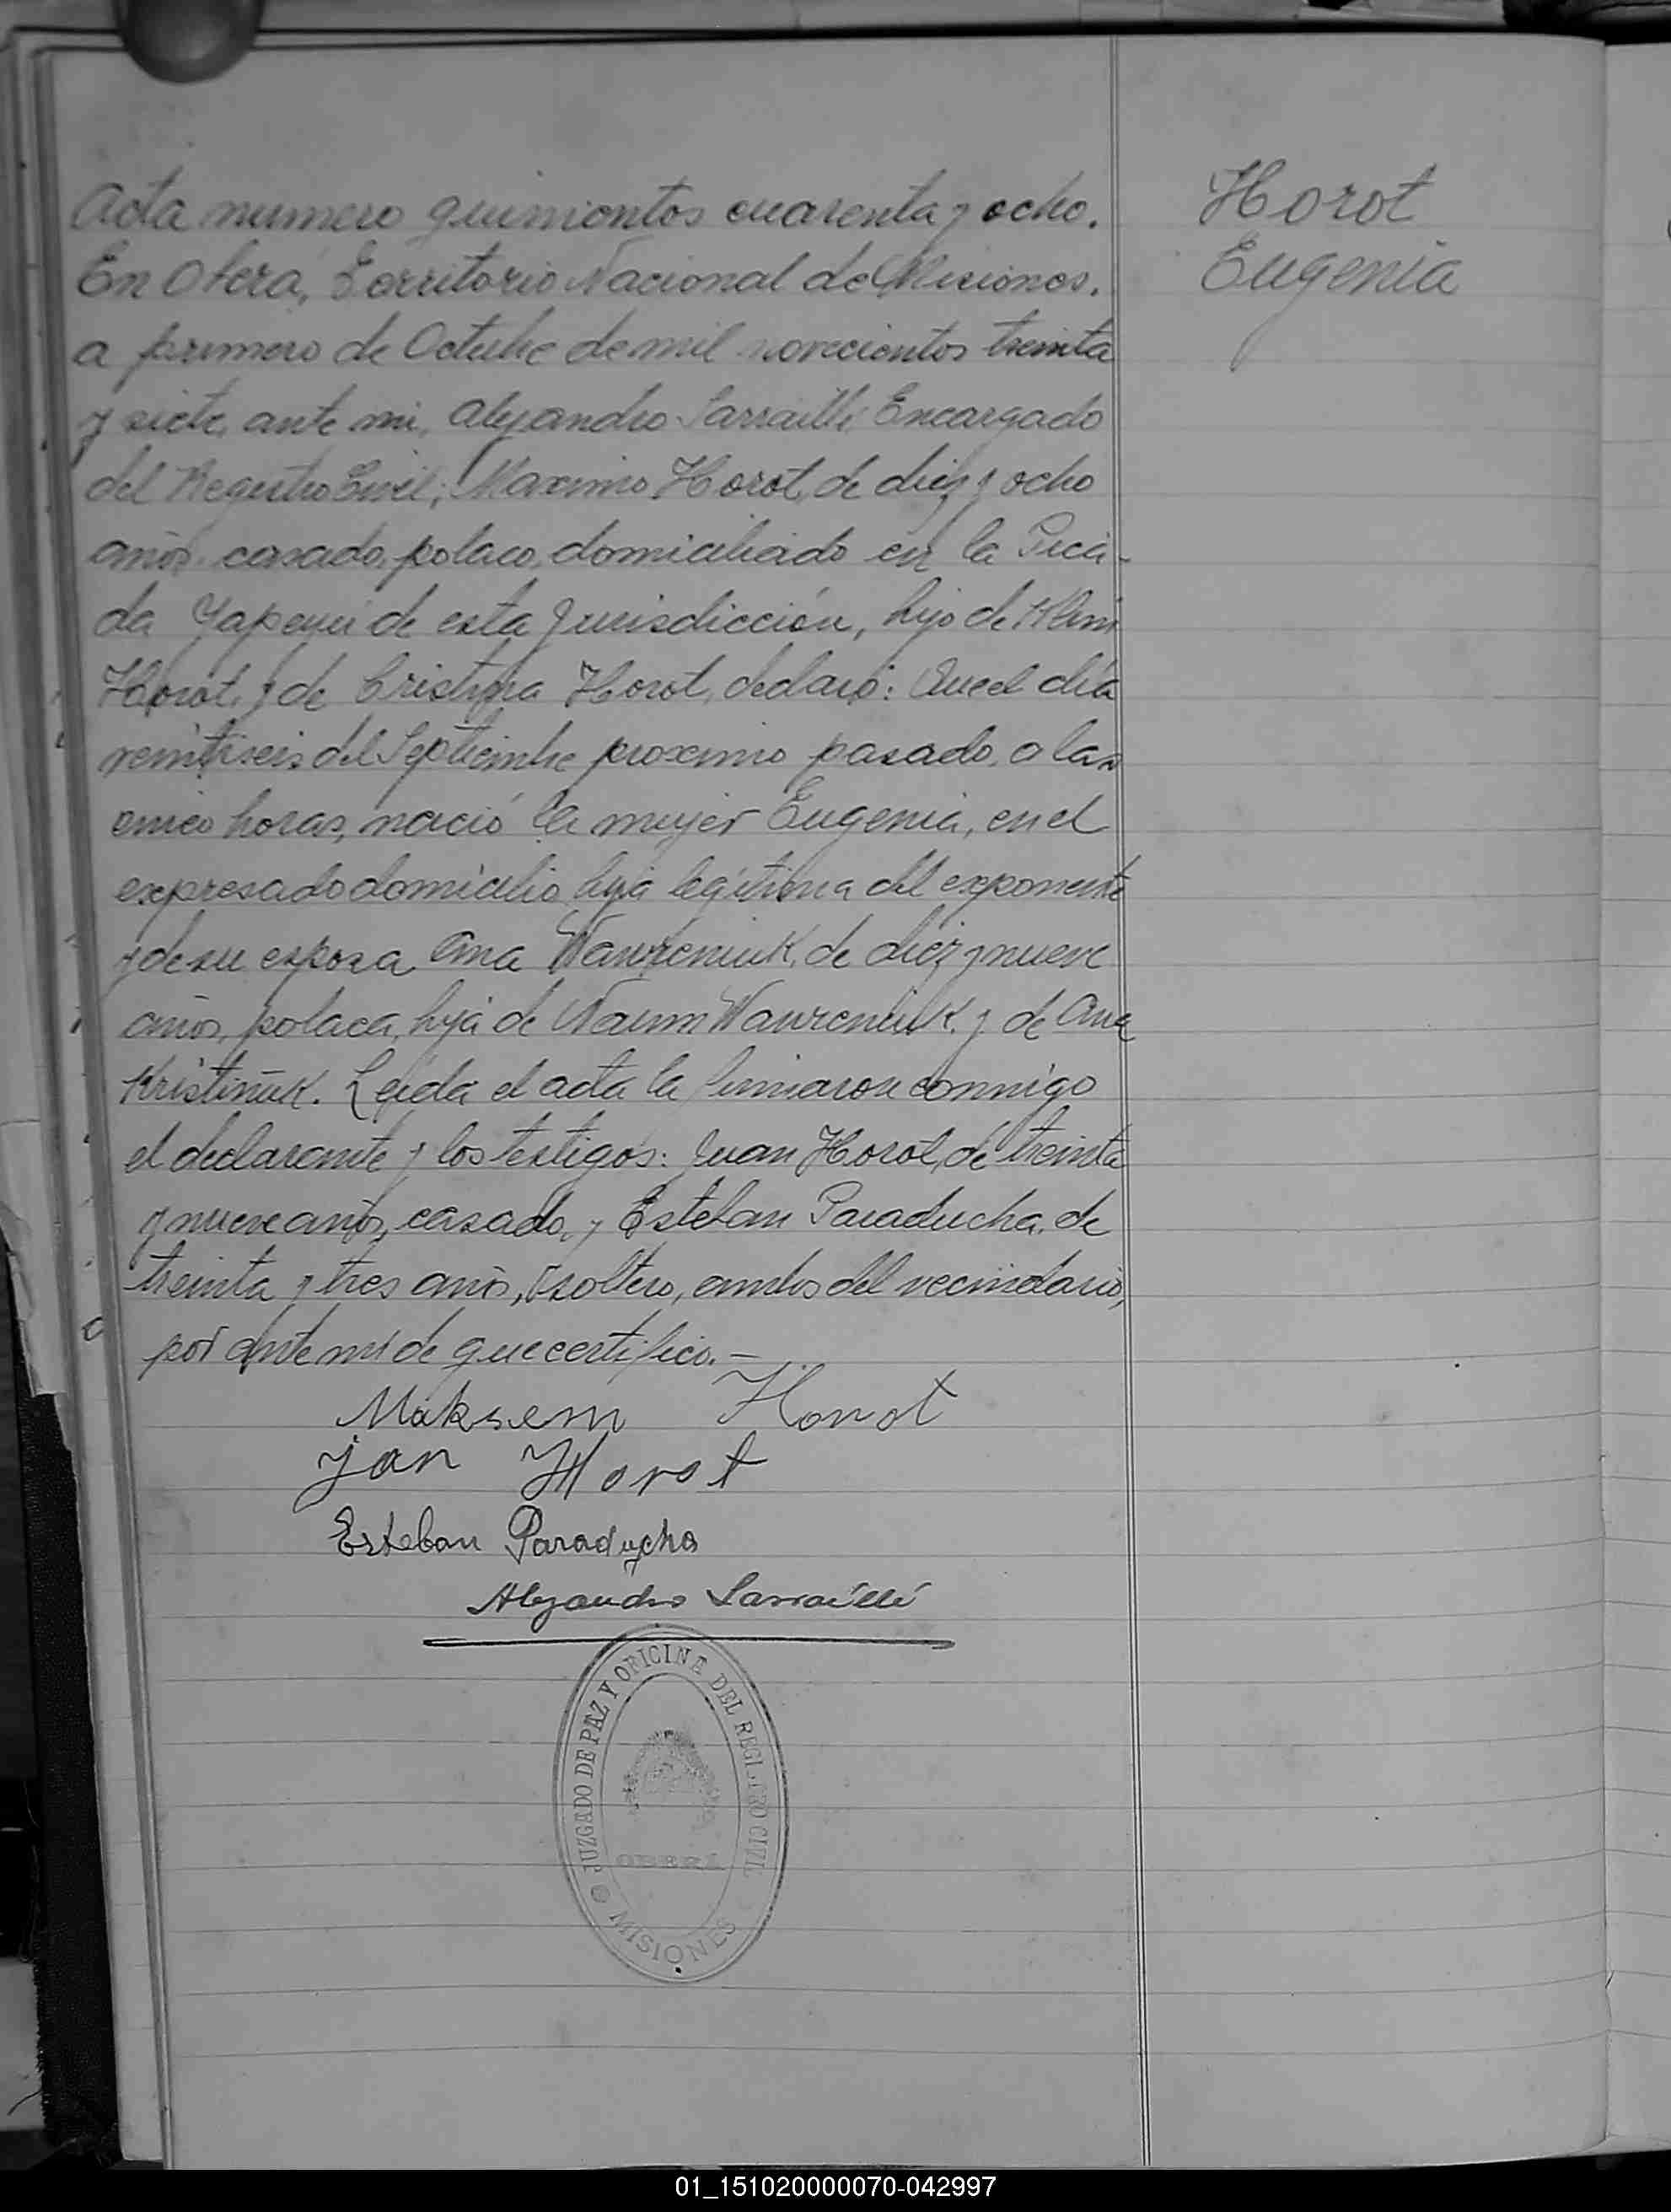 Acta numero quinientos cuarenta y ocho.
En Oberá, Territorio Nacional de Misiones,
a primero de Octubre de mil novecientos treinta
y siete, ante mi, Alejandro Sarraillé Encargado
del Registro Civil; Maximo Horot, de diez y ocho
años, casado, polaco, domiciliado en la Pica-
da Yapeyú de esta Jurisdicción, hijo de
Horot, y de Cristina Horot, declaró: Que el día
veintiseis del Septiembre proximo pasado, a las
cinco horas, nació la mujer Eugenia, en el
expresado domicilio, hija legítima del exponente
y de su esposa Ana Wawreniuk, de diez y nueve
años, polaca, hija de Naum Wawreniuk y de Ana
Kristiñuk. Leída el acta la firmaron conmigo
el declarante y los testigos: Juan Horot, de treinta
y nueve años, casado, y Esteban Paraducha, de
treinta y tres años, soltero, ambos del vecindario,
por ante mi de que certifico.—
Maksem Horot
Jan Horot
Esteban Paraducha
Alejandro Sarraillé
JUZGADO DE PAZ Y OFICINA DEL REGISTRO CIVIL
OBERÁ
MISIONES
Horot
Eugenia
01_151020000070-042997